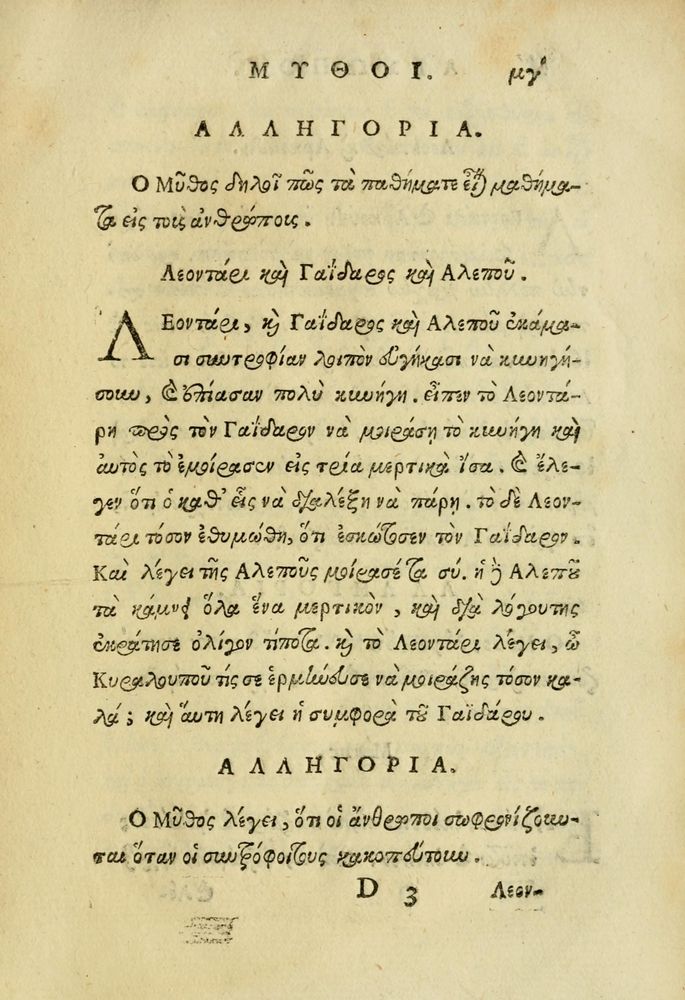 ΜΥΘΟΙ. μγ'
ΑΛΛΗΓΟΡΙΑ.
Ο Μῦθος δηλοῖ πῶς τὰ παθήματα εἶναι μαθήμα-
τα εἰς τοὺς ἀνθρώποις.
Λεοντάρι καὶ Γαΐδαρος καὶ Αλεποῦ.
ΛΕοντάρι, καὶ Γαΐδαρος καὶ Αλεποῦ ἐκάμα-
σι συντροφίαν λοιπὸν εὐγήκασι νὰ κυνηγή-
σουν, καὶ ἐπίασαν πολὺ κυνήγη. εἶπεν τὸ Λεοντά-
ρη πρὸς τὸν Γαΐδαρον νὰ μοιράση τὸ κυνήγη καὶ
αὐτὸς τὸ ἐμοίρασεν εἰς τρία μερτικὰ ἴσα. καὶ ἔλε-
γεν ὅτι ὁ καθ' εἷς νὰ διαλέξη νὰ πάρη. τὸ δὲ Λεον-
τάρι τόσον ἐθυμώθη, ὅτι ἐσκώτωσεν τὸν Γαΐδαρον.
Καὶ λέγει τῆς Αλεποῦς μοίρασέ τα σύ. ἡ δὲ Αλεποῦ
τὰ κάμνει ὅλα ἕνα μερτικὸν, καὶ διὰ λόγου της
ἐκράτησε ὀλίγον τίποτα. καὶ τὸ Λεοντάρι λέγει, ὦ
Κυραλουποῦ τίς σε ἑρμήνευσε νὰ μοιράζης τόσον κα-
λά; καὶ αὕτη λέγει ἡ συμφορὰ τοῦ Γαϊδάρου.
ΑΛΛΗΓΟΡΙΑ.
Ο Μῦθος λέγει, ὅτι οἱ ἄνθρωποι σωφρονίζουν-
ται ὅταν οἱ συντρόφοι τους κακοπέυτουν.
D 3 Λεον-